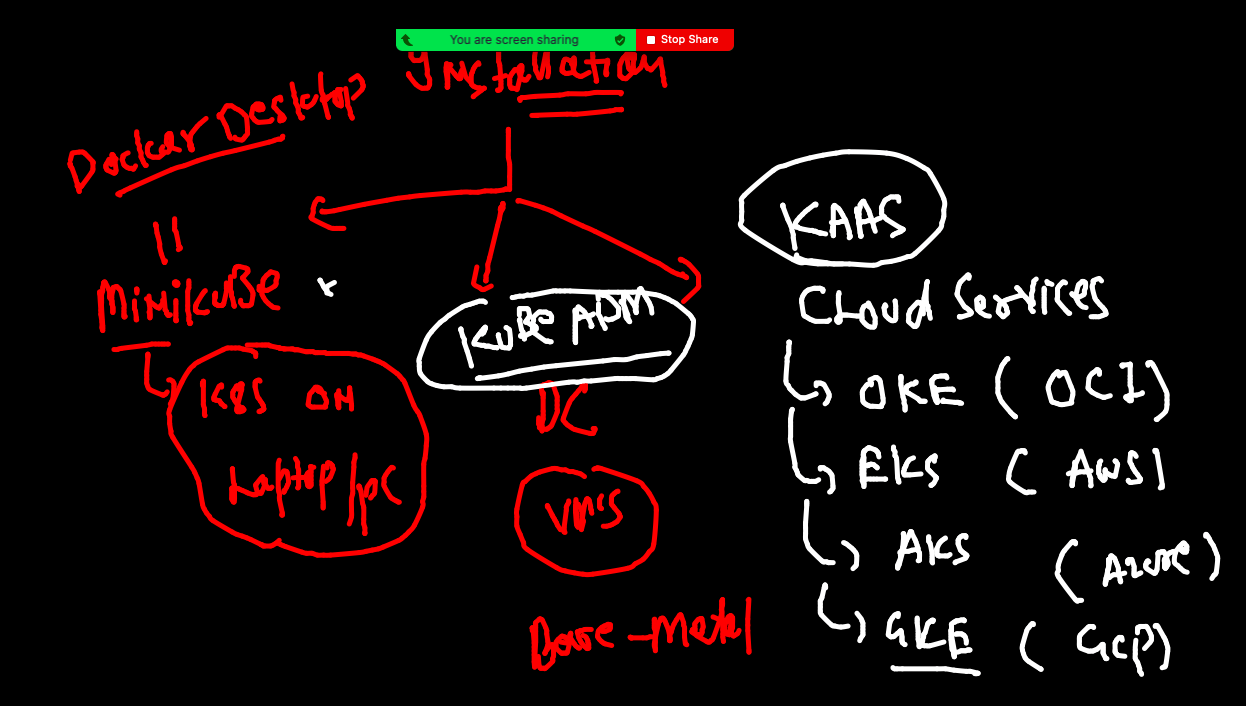 You are screen sharing Stop Share
Installation
Docker Desktop
MiniKuBe
K8S ON
Laptop/pc
KuBe ADM
DC
VM'S
Bare-Metal
KAAS
Cloud Services
OKE (OCI)
EKS (AWS)
AKS (Azure)
GKE (GCP)